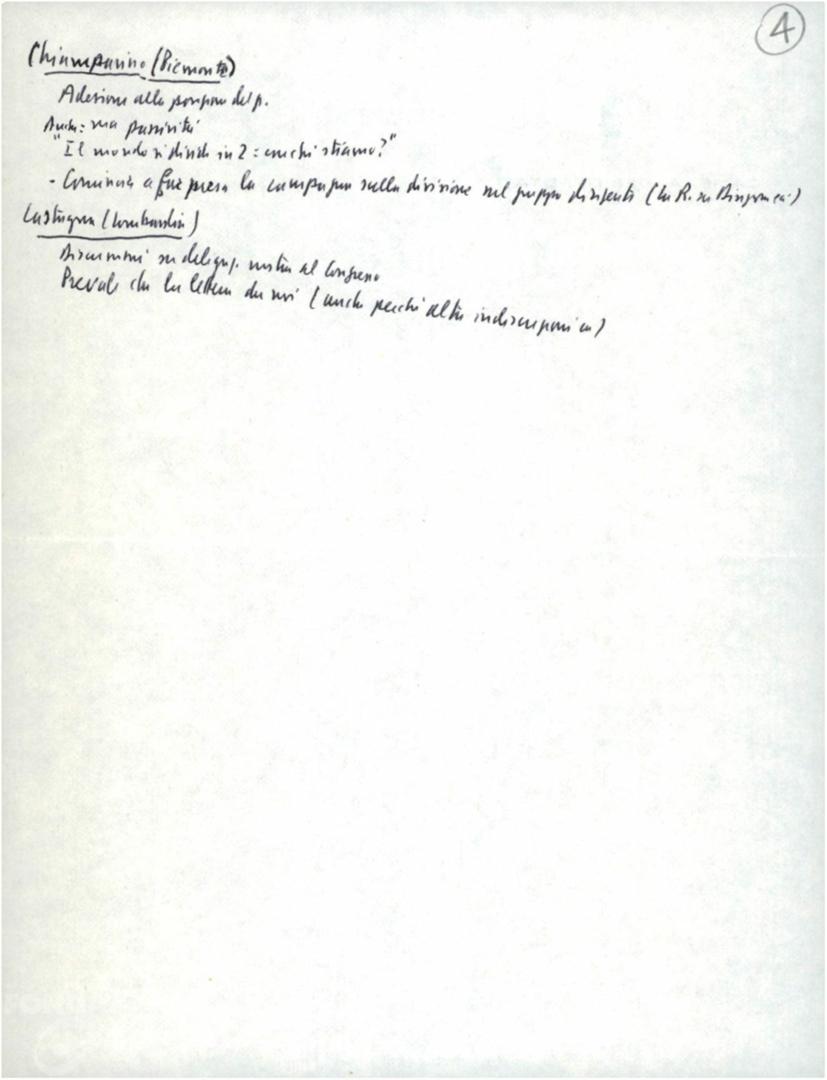 4
Chiamparino (Piemonte)
Adesione alla posizione del p.
Anche: una passività
"Il mondo si divide in 2: con chi stiamo?"
- Comincia a far presa la campagna sulla divisione nel gruppo dirigente (La R. su
Castagna (Lombardia)
Discussioni su delegaz. nostra al Congresso
Prevale che la lettera dei noi (anche perché altre indiscrezioni